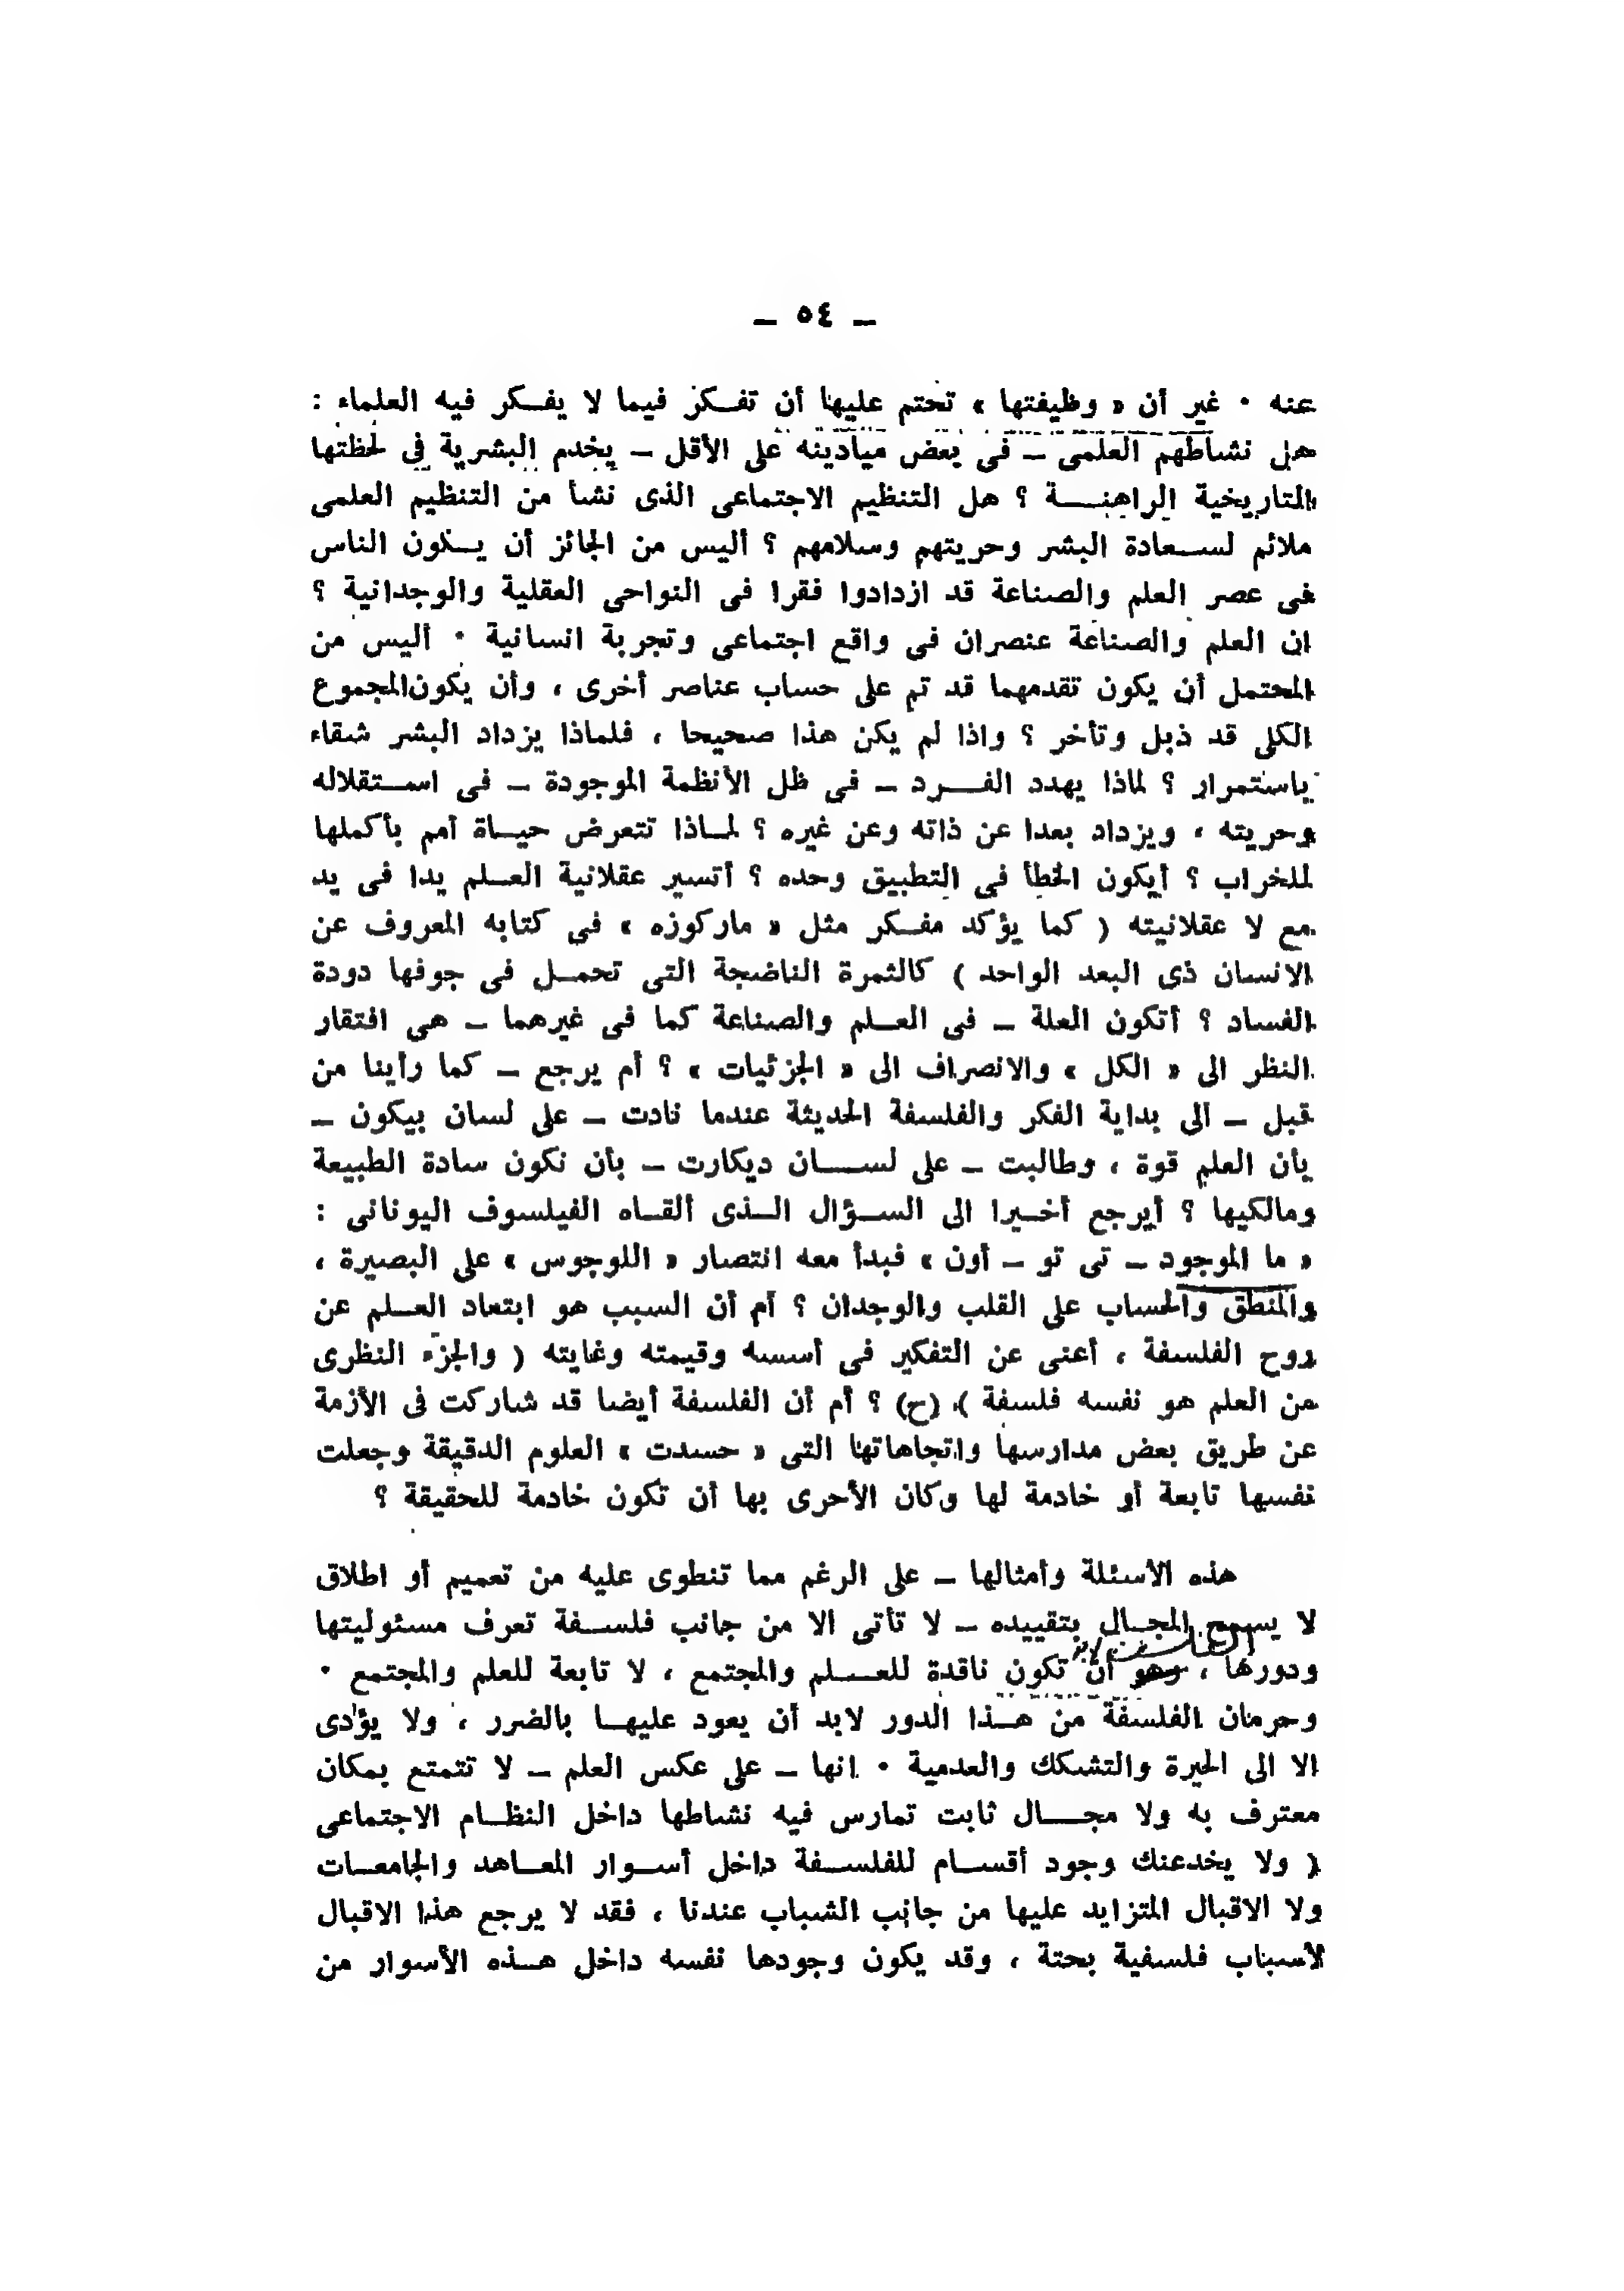 ـ ٥٤ ـ
عنه ٠ غير أن « وظيفتها » تحتم عليها أن تفكر فيما لا يفكر فيه العلماء :
هل نشاطهم العلمى ـ فى بعض ميادينه على الأقل ـ يخدم البشرية فى لحظتها
التاريخية الراهنة ؟ هل التنظيم الاجتماعى الذى نشأ من التنظيم العلمى
ملائم لسعادة البشر وحريتهم وسلامهم ؟ أليس من الجائز أن يكون الناس
فى عصر العلم والصناعة قد ازدادوا فقرا فى النواحى العقلية والوجدانية ؟
ان العلم والصناعة عنصران فى واقع اجتماعى وتجربة انسانية ٠ أليس من
المحتمل أن يكون تقدمهما قد تم على حساب عناصر أخرى ، وأن يكون المجموع
الكلى قد ذبل وتأخر ؟ واذا لم يكن هذا صحيحا ، فلماذا يزداد البشر شقاء
باستمرار ؟ لماذا يهدد الفرد ـ فى ظل الأنظمة الموجودة ـ فى استقلاله
وحريته ، ويزداد بعدا عن ذاته وعن غيره ؟ لماذا تتعرض حياة أمم بأكملها
للخراب ؟ أيكون الخطأ فى التطبيق وحده ؟ أتسير عقلانية العلم يدا فى يد
مع لا عقلانيته ( كما يؤكد مفكر مثل « ماركوزه » فى كتابه المعروف عن
الانسان ذى البعد الواحد ) كالثمرة الناضجة التى تحمل فى جوفها دودة
الفساد ؟ أتكون العلة ـ فى العلم والصناعة كما فى غيرهما ـ هى افتقار
النظر الى « الكل » والانصراف الى « الجزئيات » ؟ أم يرجع ـ كما رأينا من
قبل ـ الى بداية الفكر والفلسفة الحديثة عندما نادت ـ على لسان بيكون ـ
بأن العلم قوة ، وطالبت ـ على لسان ديكارت ـ بأن نكون سادة الطبيعة
ومالكيها ؟ أيرجع أخيرا الى السؤال الذى ألقاه الفيلسوف اليونانى :
« ما الموجود ـ تى تو ـ أون » فبدأ معه انتصار « اللوجوس » على البصيرة ،
والمنطق والحساب على القلب والوجدان ؟ أم أن السبب هو ابتعاد العلم عن
روح الفلسفة ، أعنى عن التفكير فى أسسه وقيمته وغايته ( والجزء النظرى
من العلم هو نفسه فلسفة ) (ح) ؟ أم أن الفلسفة أيضا قد شاركت فى الأزمة
عن طريق بعض مدارسها واتجاهاتها التى « حسدت » العلوم الدقيقة وجعلت
نفسها تابعة أو خادمة لها وكان الأحرى بها أن تكون خادمة للحقيقة ؟
هذه الأسئلة وأمثالها ـ على الرغم مما تنطوى عليه من تعميم أو اطلاق
لا يسمح المجال بتقييده ـ لا تأتى الا من جانب فلسفة تعرف مسئوليتها
ودورها ، وهو أن تكون ناقدة للعلم والمجتمع ، لا تابعة للعلم والمجتمع ٠
وحرمان الفلسفة من هذا الدور لابد أن يعود عليها بالضرر ، ولا يؤدى
الا الى الحيرة والتشكك والعدمية ٠ انها ـ على عكس العلم ـ لا تتمتع بمكان
معترف به ولا مجال ثابت تمارس فيه نشاطها داخل النظام الاجتماعى
( ولا يخدعنك وجود أقسام للفلسفة داخل أسوار المعاهد والجامعات
ولا الاقبال المتزايد عليها من جانب الشباب عندنا ، فقد لا يرجع هذا الاقبال
لأسباب فلسفية بحتة ، وقد يكون وجودها نفسه داخل هذه الأسوار من